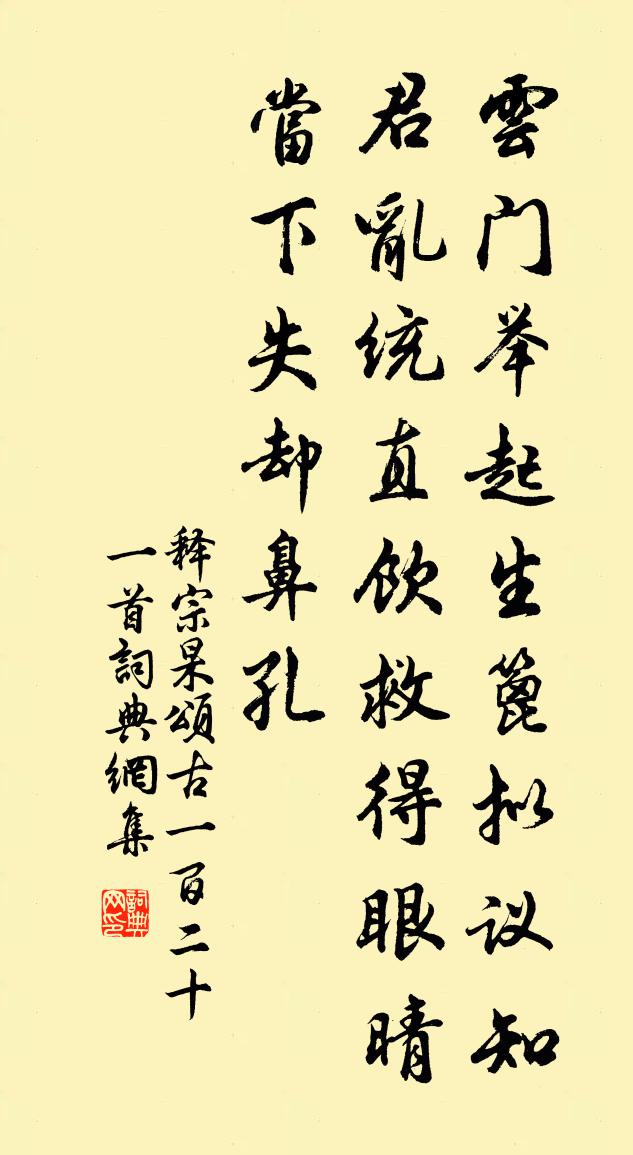 雲门举起生篦拟议知
君亂统直饮救得眼睛
當下失却鼻孔
释宗杲頌古一百二十
一首詞典網集
詞典网印